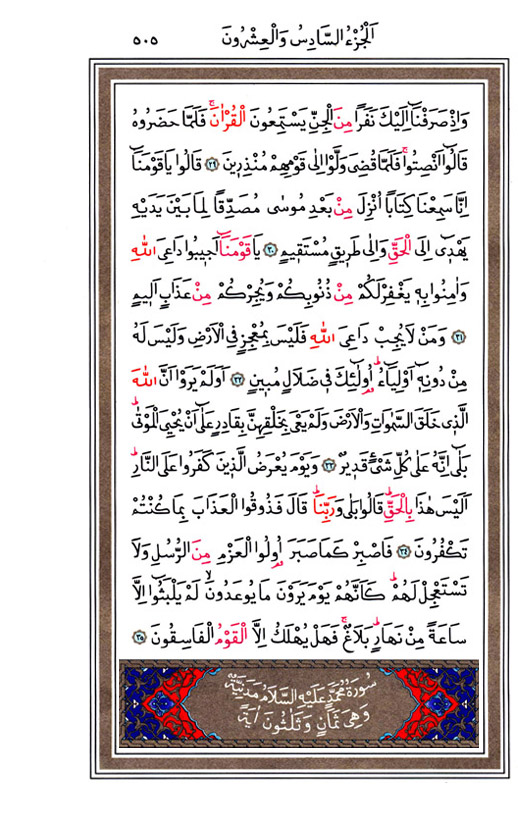 اَلْجُزْءُ السَّادِسُ وَالْعِشْرُونَ
٥٠٥
وَاِذْ صَرَفْنَٓا اِلَيْكَ نَفَرًا مِنَ الْجِنِّ يَسْتَمِعُونَ الْقُرْاٰنَۚ فَلَمَّا حَضَرُوهُ
قَالُٓوا اَنْصِتُواۚ فَلَمَّا قُضِىَ وَلَّوْا اِلٰى قَوْمِهِمْ مُنْذِرٖينَ ﴿٢٩﴾ قَالُوا يَا قَوْمَنَٓا
اِنَّا سَمِعْنَا كِتَابًا اُنْزِلَ مِنْ بَعْدِ مُوسٰى مُصَدِّقًا لِمَا بَيْنَ يَدَيْهِ
يَهْدٖٓى اِلَى الْحَقِّ وَاِلٰى طَرٖيقٍ مُسْتَقٖيمٍ ﴿٣٠﴾ يَا قَوْمَنَٓا اَجٖيبُوا دَاعِىَ اللّٰهِ
وَاٰمِنُوا بِهٖ يَغْفِرْ لَكُمْ مِنْ ذُنُوبِكُمْ وَيُجِرْكُمْ مِنْ عَذَابٍ اَلٖيمٍ
﴿٣١﴾ وَمَنْ لَا يُجِبْ دَاعِىَ اللّٰهِ فَلَيْسَ بِمُعْجِزٍ فِى الْاَرْضِ وَلَيْسَ لَهُ
مِنْ دُونِهٖٓ اَوْلِيَٓاءُۜ اُو۬لٰٓئِكَ فٖى ضَلَالٍ مُبٖينٍ ﴿٣٢﴾ اَوَلَمْ يَرَوْا اَنَّ اللّٰهَ
الَّذٖى خَلَقَ السَّمٰوَاتِ وَالْاَرْضَ وَلَمْ يَعْىَ بِخَلْقِهِنَّ بِقَادِرٍ عَلٰٓى اَنْ يُحْيِىَ الْمَوْتٰىۜ
بَلٰٓى اِنَّهُ عَلٰى كُلِّ شَىْءٍ قَدٖيرٌ ﴿٣٣﴾ وَيَوْمَ يُعْرَضُ الَّذٖينَ كَفَرُوا عَلَى النَّارِۜ
اَلَيْسَ هٰذَا بِالْحَقِّۜ قَالُوا بَلٰى وَرَبِّنَاۜ قَالَ فَذُوقُوا الْعَذَابَ بِمَا كُنْتُمْ
تَكْفُرُونَ ﴿٣٤﴾ فَاصْبِرْ كَمَا صَبَرَ اُو۬لُوا الْعَزْمِ مِنَ الرُّسُلِ وَلَا
تَسْتَعْجِلْ لَهُمْۜ كَاَنَّهُمْ يَوْمَ يَرَوْنَ مَا يُوعَدُونَۙ لَمْ يَلْبَثُٓوا اِلَّا
سَاعَةً مِنْ نَهَارٍۜ بَلَاغٌۚ فَهَلْ يُهْلَكُ اِلَّا الْقَوْمُ الْفَاسِقُونَ ﴿٣٥﴾
سُورَةُ مُحَمَّدٍ عَلَيْهِ السَّلَامُ مَدَنِيَّةٌ
وَهِىَ ثَمَانٍ وَثَلٰثُونَ اٰيَةً